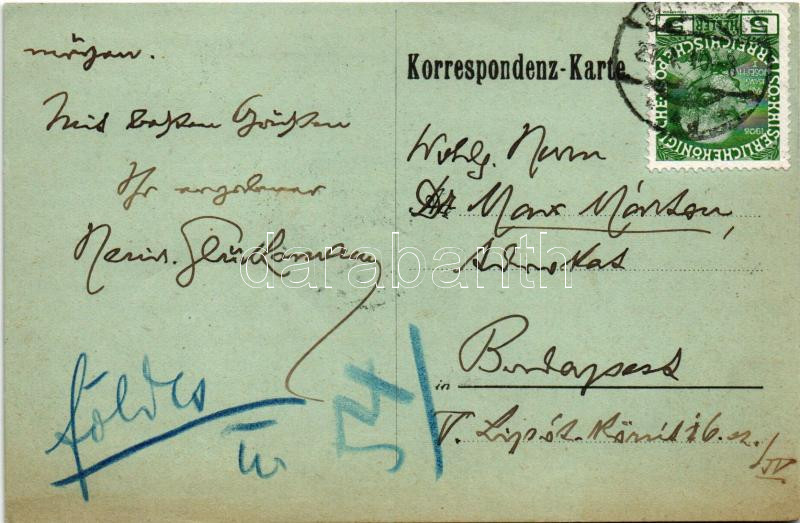 mögen.
Mit besten Grüßen
Ihr ergebener
Heinr. Glücksmann
Földes
Korrespondenz-Karte
Wohlg. Herrn
Dr Marx Márton,
Advokat
in Budapest
V. Lipót körút 16. sz.
IV
54/
5 HELLER 5
1908
darabanth